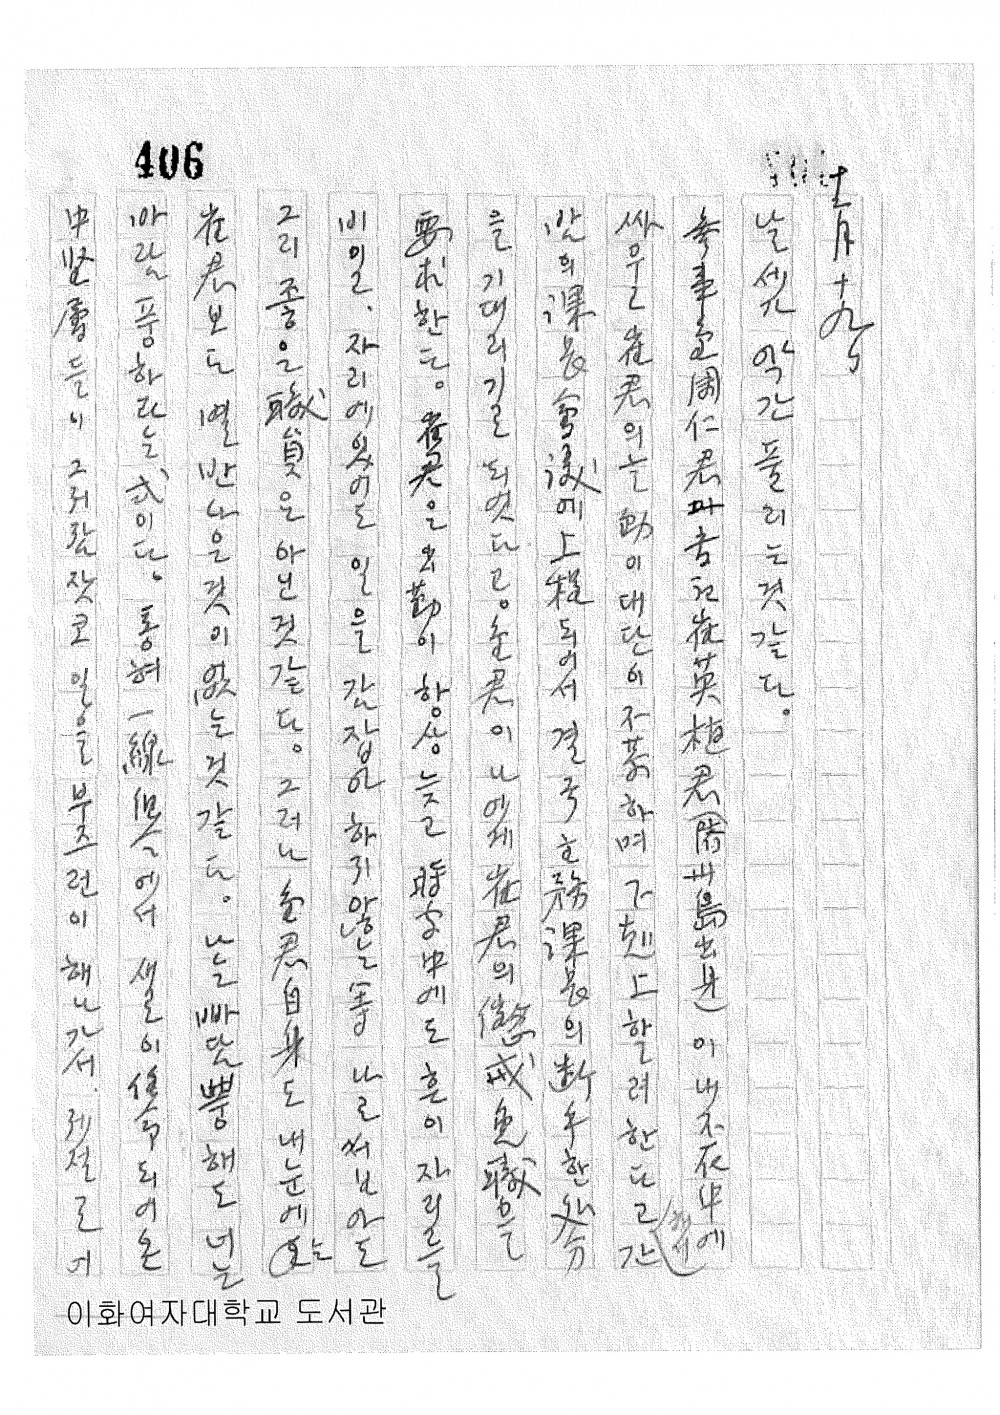 406
十一月 十九日
날세 약간 풀리는것 갈다.
参事室 周仁君과 書記 崔英植君 (濟州島出身)이 내 不在中에
싸우고 崔君의 言動이 대단이 不恭하며 下剋上 할려 한다고 간
밤의 課長会議에 上程되여서 결국 主務課長의 断乎한 処分
을 기대리기로 되엿다고. 金君이 나에게 崔君의 懲戒免職을
要求한다. 崔君은 出勤이 항상 늦고 時字中에도 흔이 자리를
비일, 자리에 있어도 일을 갑잡아 하지 않는等 나로써 보아도
그리 좋은 職員은 아닌것 갈다. 그러나 金君自身도 내눈에(는)
崔君보다 별반 나은것이 없는것 갈다. 나는 빠담뿡해도 너는
바람풍하라는 式이다. 통혀 一線 에서 샐이 되여온
中堅層들이 그저람 잣코 일을 부즈런이 해나가서. 제절로 더
이화여자대학교 도서관